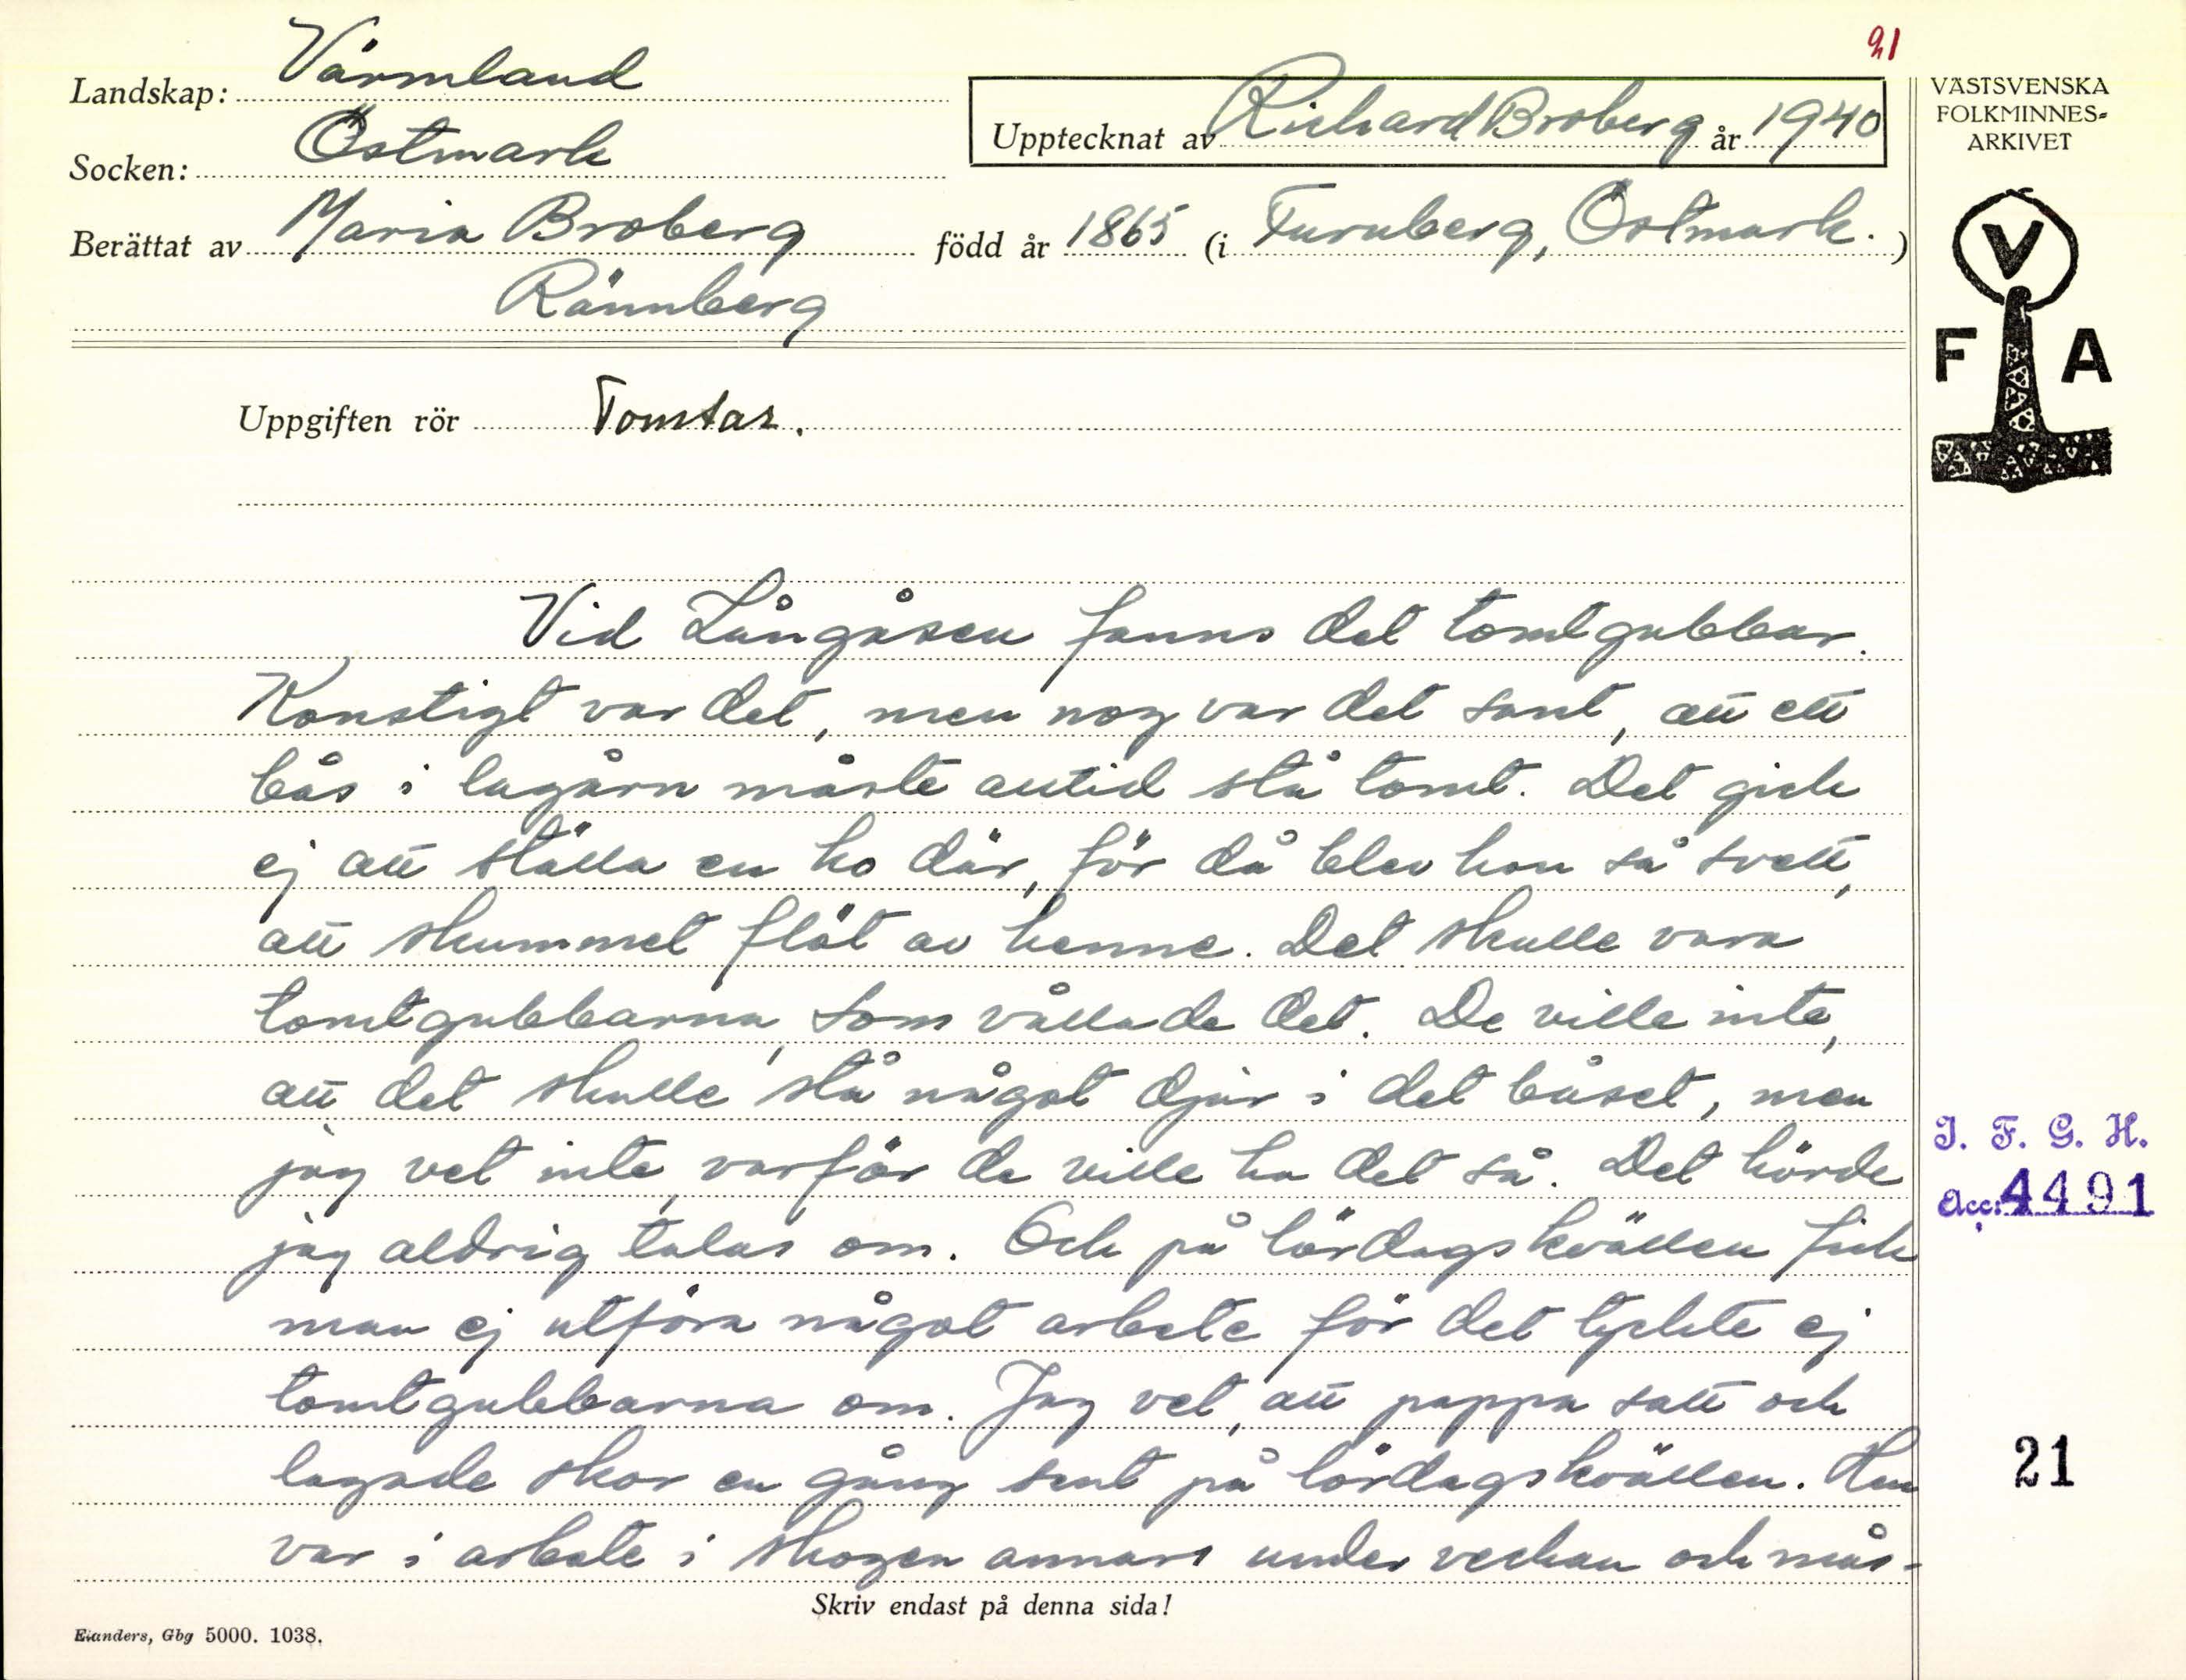 21
Landskap: Värmland
Socken: Östmark
Upptecknat av Richard Broberg år 1940
Berättat av Maria Broberg född år 1865 (i Furuberg, Östmark.)
Rännberg
VÄSTSVENSKA
FOLKMINNES-
ARKIVET
V
F A
Uppgiften rör Tomtar.
Vid Långåsen fanns det tomtgubbar.
Konstigt var det, men nog var det sant, att ett
bås i lagårn måste alltid stå tomt. Det gick
ej att ställa en ko där, för då blev hon så svett,
att skummet flöt av henne. Det skulle vara
tomtgubbarna, som vållade det. De ville inte,
att det skulle stå något djur i det båset, men
jag vet inte, varför de ville ha det så. Det hörde
jag aldrig talas om. Och på lördagskvällen fick
man ej utföra något arbete för det tyckte ej
tomtgubbarna om. Jag vet, att pappa satt och
lagade skor en gång sent på lördagskvällen. Han
var i arbete i skogen annars under veckan och mås-
I. F. G. H.
Acc: 4491
21
Skriv endast på denna sida!
Elanders, Gbg 5000. 1038.